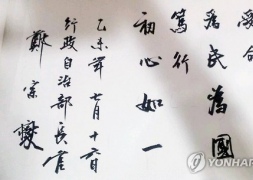 爲民爲國
篤行
初心如一
乙未年 七月 十六日
行政自治部長官
鄭宗燮
YONHAP